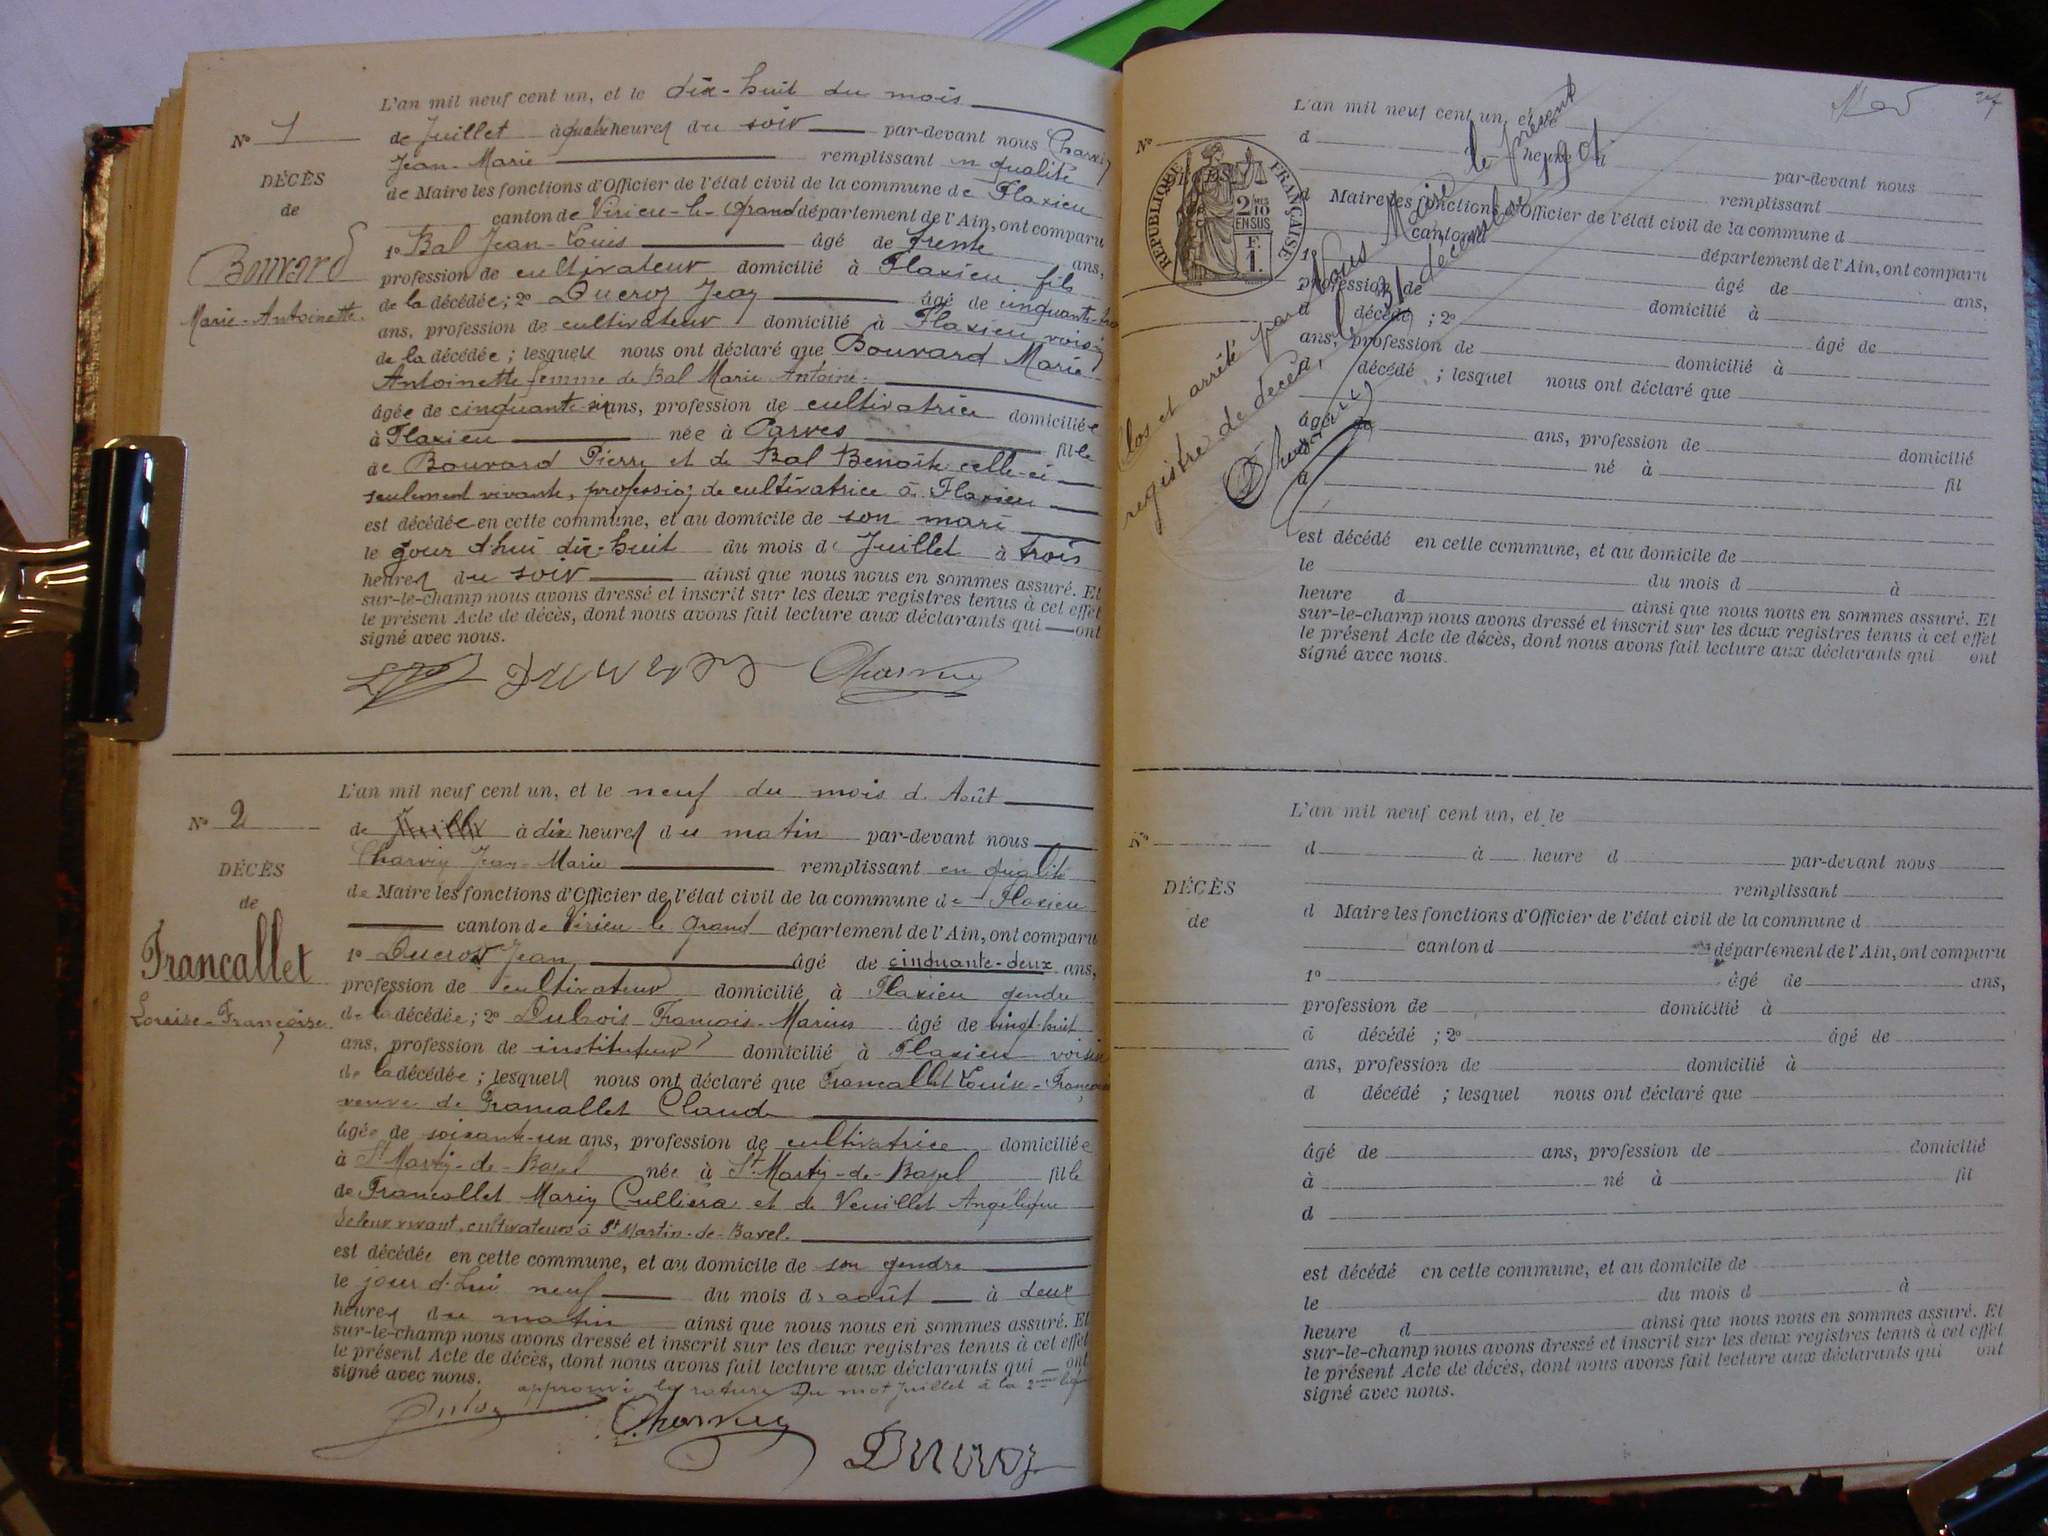 L'an mil neuf cent un, et le dix-huit du mois
N° 1
de Juillet à quatre heures du soir par-devant nous Charvin
Jean-Marie remplissant en qualité
DÉCÈS
de Maire les fonctions d'Officier de l'état civil de la commune de Flaxieu
de
canton de Virieu-le-Grand département de l'Ain, ont comparu
1° Bal Jean-Louis âgé de trente ans,
Bouvard
profession de cultivateur domicilié à Flaxieu fils
Marie-Antoinette
de la décédée; 2° Ducroz Jean âgé de cinquante
ans, profession de cultivateur domicilié à Flaxieu voisin
de la décédée; lesquels nous ont déclaré que Bouvard Marie
Antoinette femme de Bal Marie Antoine
âgée de cinquante-six ans, profession de cultivatrice domiciliée
à Flaxieu née à Parves fille
de Bouvard Pierre et de Bal Benoîte celle-ci
seulement vivante, profession de cultivatrice à Flaxieu
est décédée en cette commune, et au domicile de son mari
le jour d'hui dix-huit du mois de Juillet à trois
heures du soir ainsi que nous nous en sommes assuré. Et
sur-le-champ nous avons dressé et inscrit sur les deux registres tenus à cet effet
le présent Acte de décès, dont nous avons fait lecture aux déclarants qui ont
signé avec nous.
Charvin
L'an mil neuf cent un, et le neuf du mois d'Août
N° 2
de Juillet à dix heures du matin par-devant nous
Charvin Jean-Marie remplissant en qualité
DÉCÈS
de Maire les fonctions d'Officier de l'état civil de la commune de Flaxieu
de
canton de Virieu-le-Grand département de l'Ain, ont comparu
Francallet
1° Ducroz Jean âgé de cinquante-deux ans,
profession de cultivateur domicilié à Flaxieu gendre
Louise-Françoise
de la décédée; 2° Dubois François-Marius âgé de vingt-huit
ans, profession de instituteur domicilié à Flaxieu voisin
de la décédée; lesquels nous ont déclaré que Francallet Louise-Françoise
veuve de Francallet Claude
âgée de soixante-un ans, profession de cultivatrice domiciliée
à St Martin-de-Bavel née à St Martin-de-Bavel fille
de Francallet Marin Culliera et de Veuillet Angélique
de leur vivant, cultivateurs à St Martin-de-Bavel.
est décédée en cette commune, et au domicile de son gendre
le jour d'hui neuf du mois d'août à deux
heures du matin ainsi que nous nous en sommes assuré. Et
sur-le-champ nous avons dressé et inscrit sur les deux registres tenus à cet effet
le présent Acte de décès, dont nous avons fait lecture aux déclarants qui ont
signé avec nous. approuvé la rature du mot Juillet à la 2ème ligne
Charvin
Ducroz
L'an mil neuf cent un, et le
N°
d heure d
par-devant nous
remplissant
d Maire les fonctions d'Officier de l'état civil de la commune d
canton d
département de l'Ain, ont comparu
1°
âgé de ans,
profession de domicilié à
d décédé ; 2° âgé de
ans, profession de domicilié à
décédé ; lesquel nous ont déclaré que
âgé de ans, profession de domicilié
à né à fil
est décédé en cette commune, et au domicile de
le du mois d à
heure d ainsi que nous nous en sommes assuré. Et
sur-le-champ nous avons dressé et inscrit sur les deux registres tenus à cet effet
le présent Acte de décès, dont nous avons fait lecture aux déclarants qui ont
signé avec nous.
RÉPUBLIQUE FRANÇAISE
2 MES
10
EN SUS
F.
1.
Clos et arrêté par Nous Maire le présent
registre de décès, le 31 décembre 1901
Charvin
L'an mil neuf cent un, et le
N°
d à heure d par-devant nous
remplissant
DÉCÈS
d Maire les fonctions d'Officier de l'état civil de la commune d
de
canton d département de l'Ain, ont comparu
1° âgé de ans,
profession de domicilié à
d décédé ; 2° âgé de
ans, profession de domicilié à
d décédé ; lesquel nous ont déclaré que
âgé de ans, profession de domicilié
à né à fil
d
est décédé en cette commune, et au domicile de
le du mois d à
heure d ainsi que nous nous en sommes assuré. Et
sur-le-champ nous avons dressé et inscrit sur les deux registres tenus à cet effet
le présent Acte de décès, dont nous avons fait lecture aux déclarants qui ont
signé avec nous.